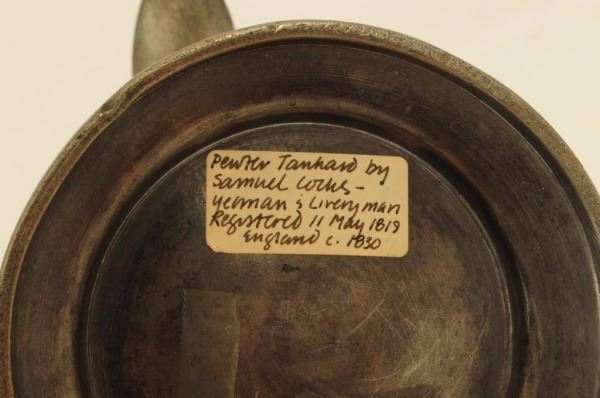 Pewter Tankard by
Samuel Cocks -
Yeoman & Liveryman
Registered 11 May 1819
England c. 1830